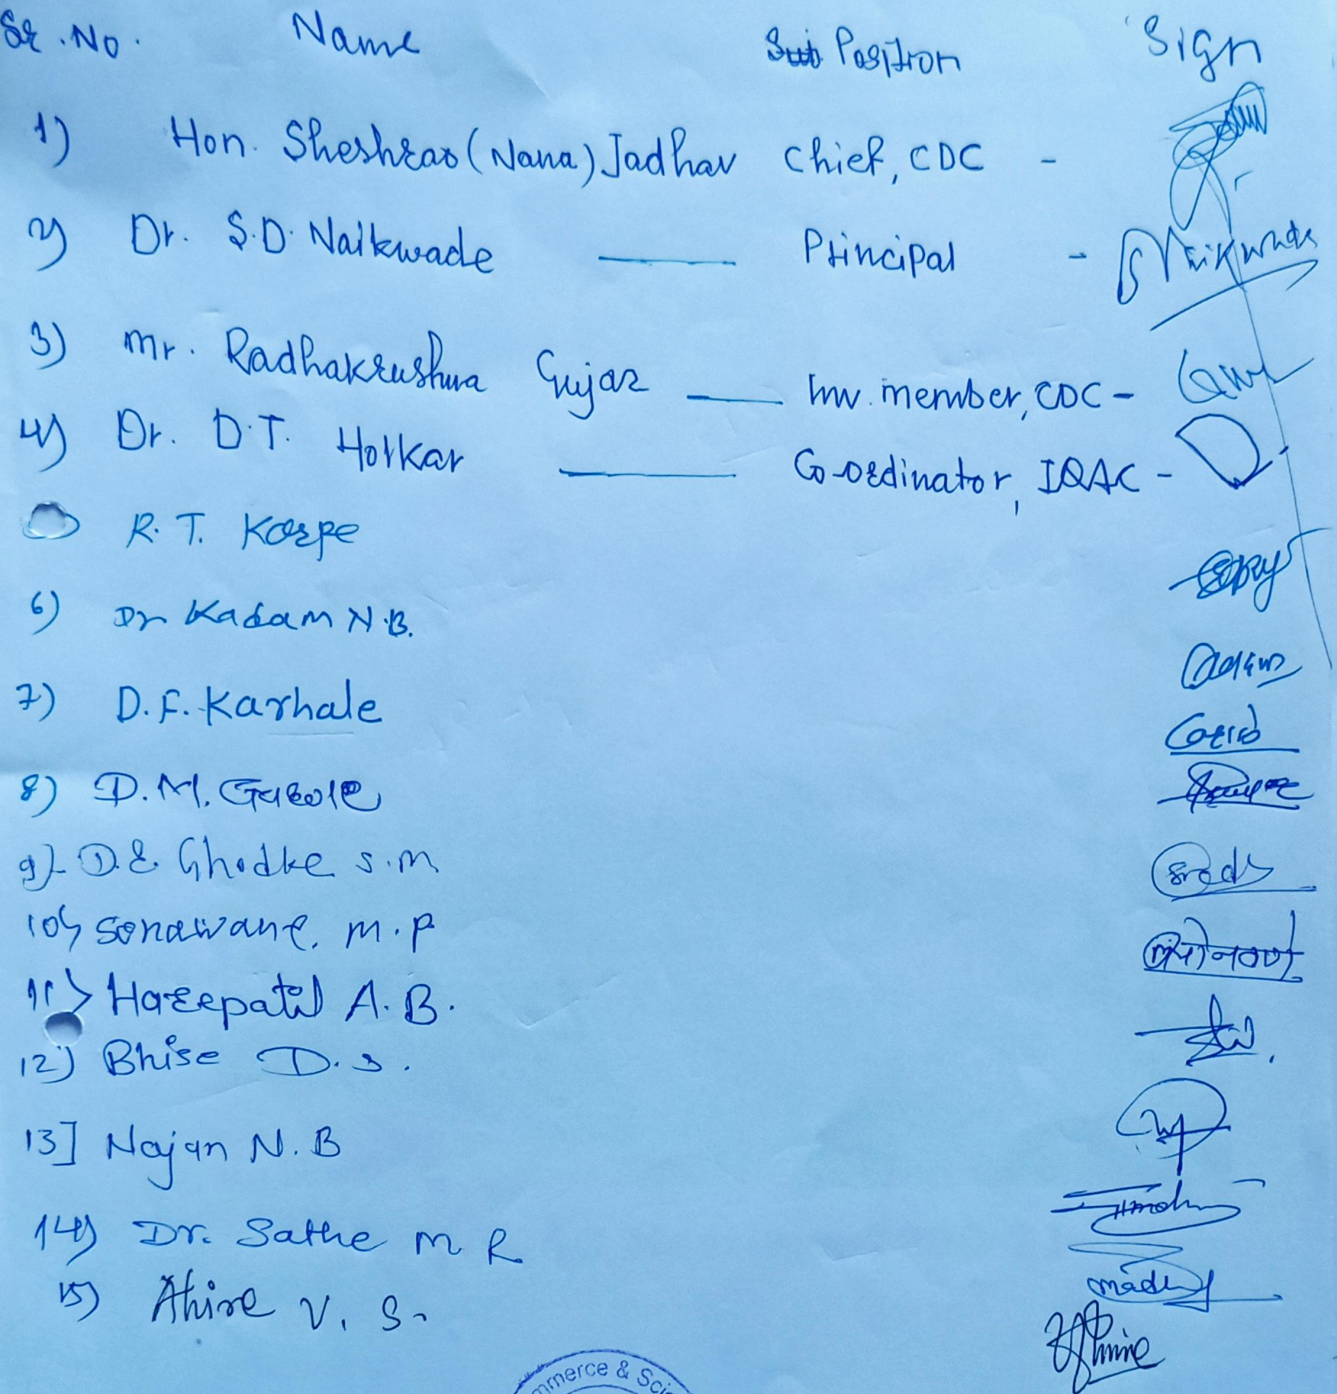 Sr. No. Name Position Sign
1) Hon. Sheshrao (Nana) Jadhav Chief, CDC -
2) Dr. S.D. Naikwade — Principal - SNaikwade
3) Mr. Radhakrushna Gujar — Inv. member, CDC -
4) Dr. D.T. Holkar — Co-ordinator, IQAC - D.
R. T. Karpe
6) Dr Kadam N.B.
7) D.F. Karhale
8) D.M. Gabole
9) Dr Ghodke S.M
10) Sonawane. M.P
11) Harepatil A.B.
12) Bhise D.S.
13] Najan N.B
14) Dr. Sathe M R
15) Ahire V. S.
mmerce & Sci